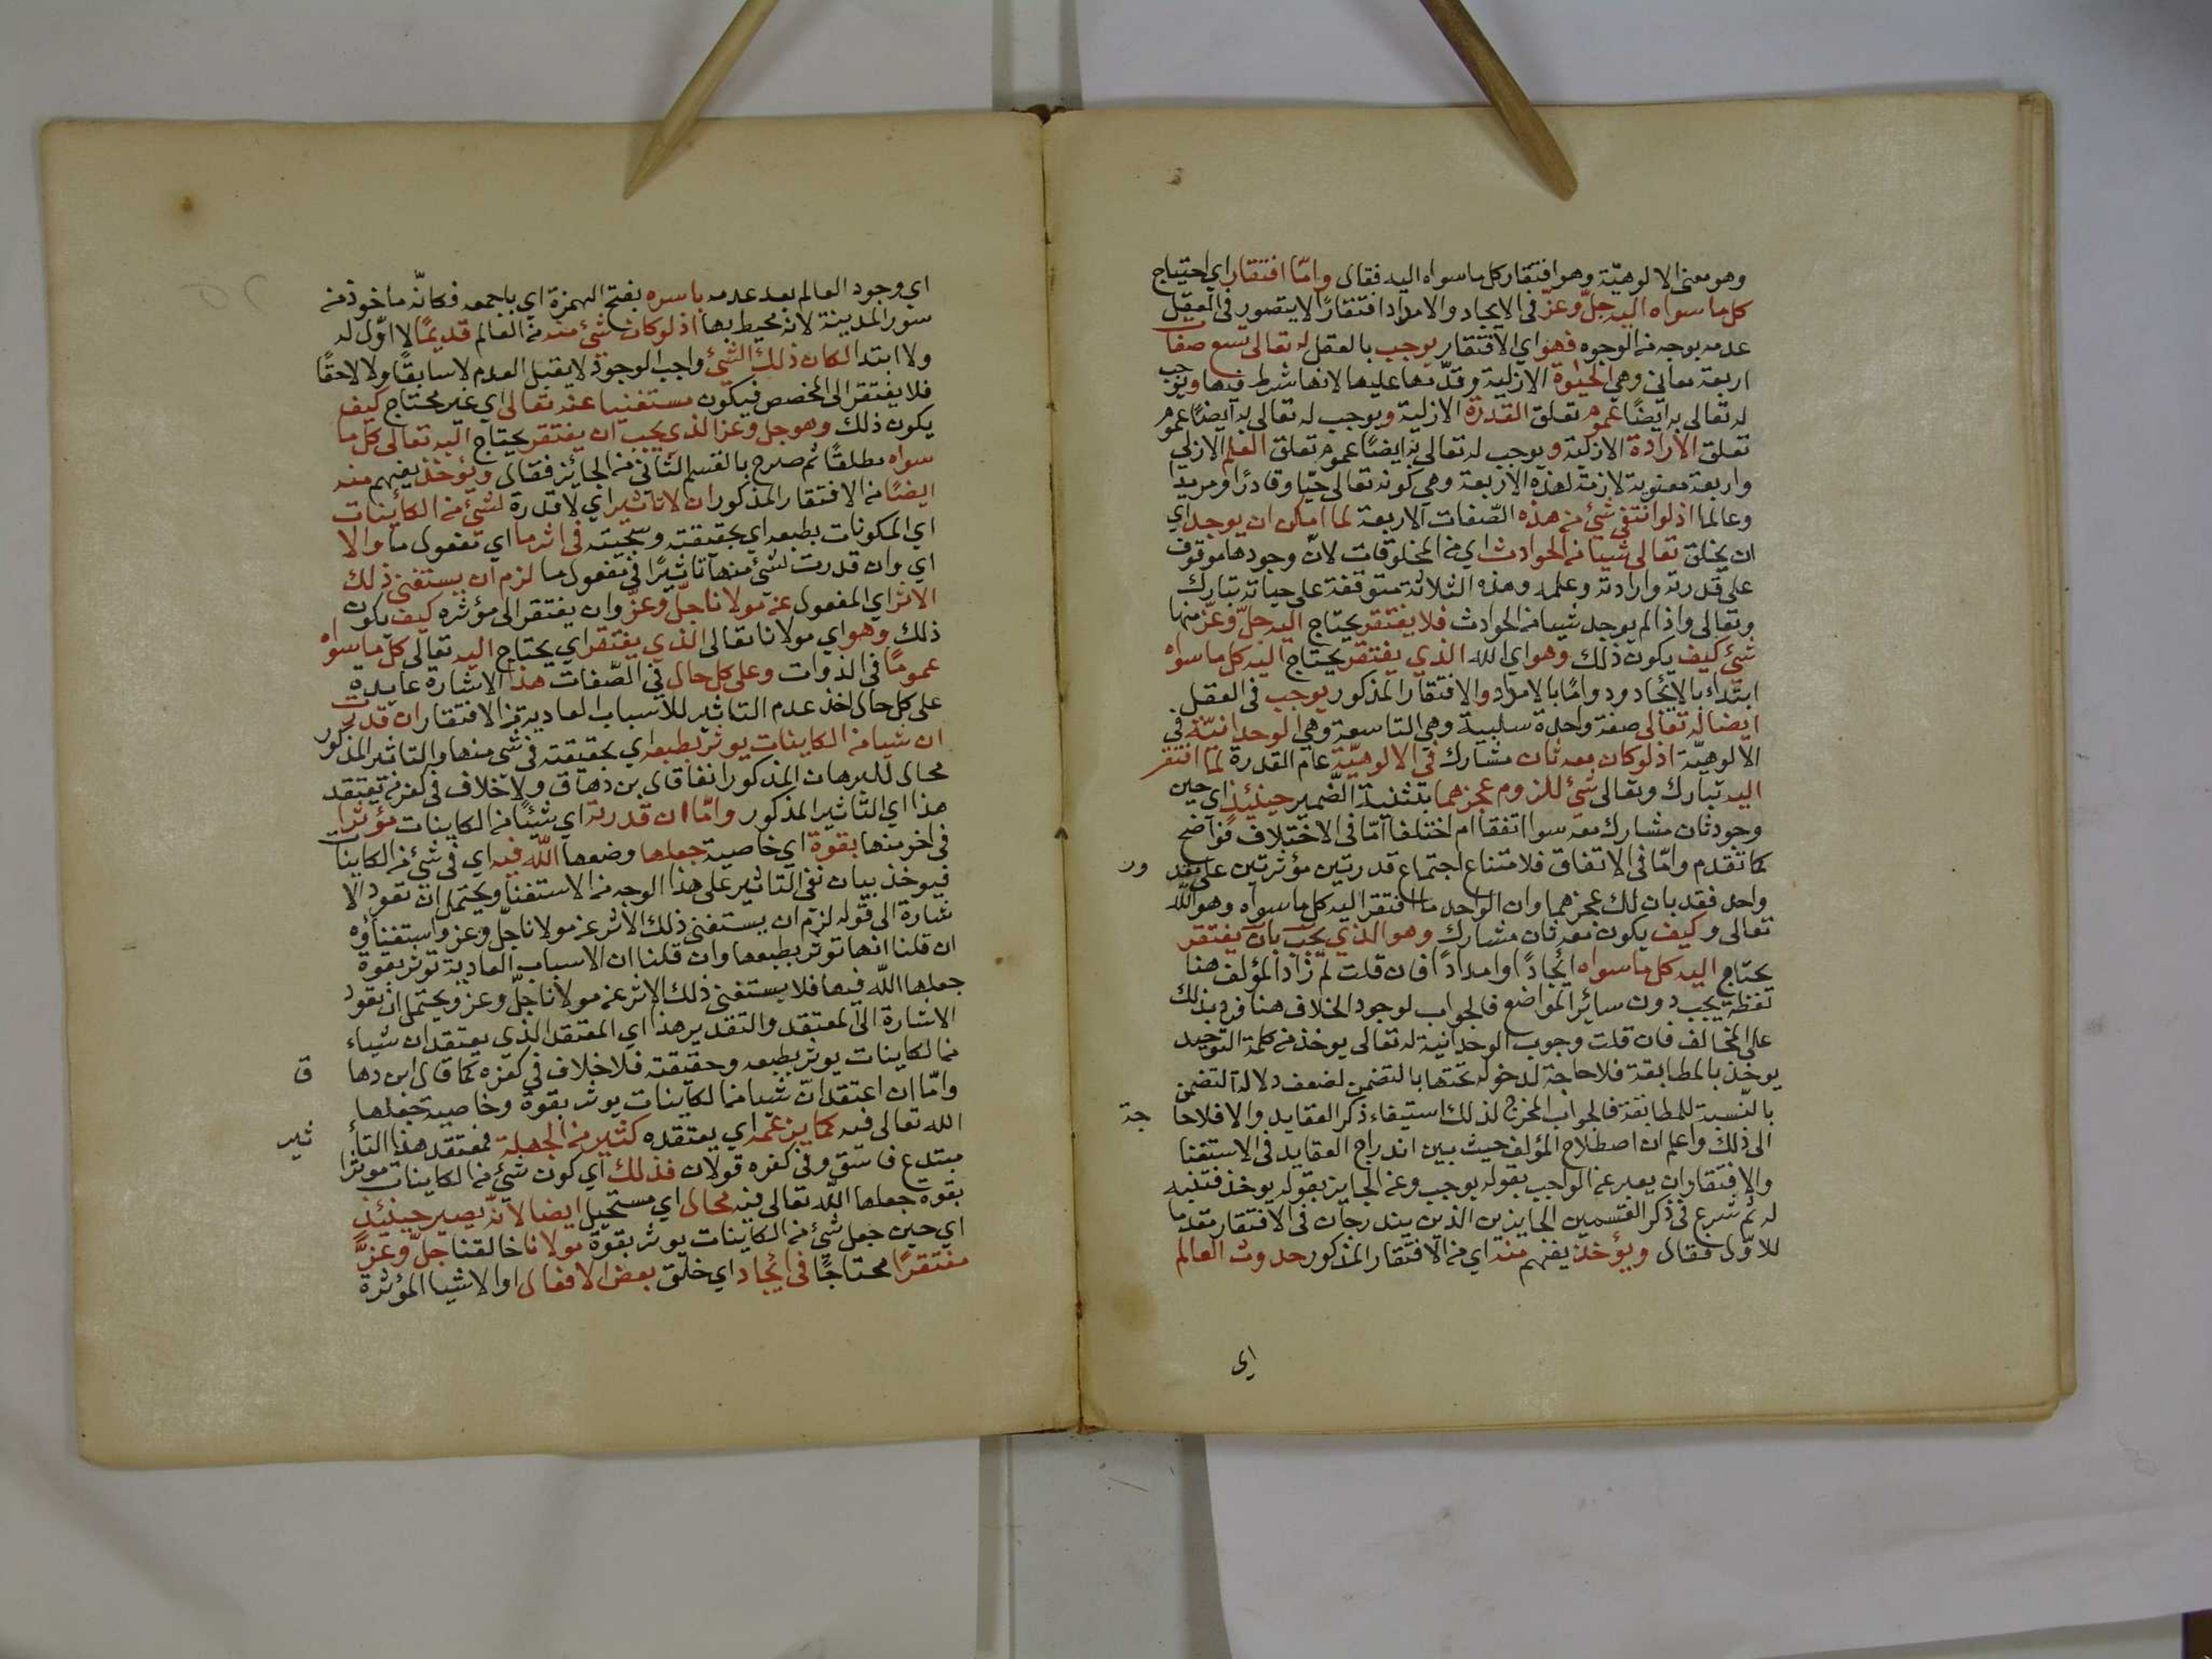 وهو معنى الالوهيّة وهو افتقار كل ما سواه اليه فقال وامّا افتقار اي احتياج
كل ما سواه اليه جلّ وعزّ في الايجاد والامداد افتقارًا لا يتصور في العقل
عدمه بوجه من الوجوه فهو اي الافتقار يوجب بالعقل له تعالى تسع صفات
اربعة معاني وهي الحيٰوة الازلية وقدّمها عليها لانها شرط فيها ويوجب
له تعالى به ايضًا عموم تعلق القدرة الازلية ويوجب له تعالى به ايضًا عموم
تعلق الارادة الازلية ويوجب له تعالى به ايضًا عموم تعلق العلم الازلي
واربعة معنوية لازمة لهذه الاربعة وهي كونه تعالى حيّا وقادرًا ومريدا
وعالما اذ لو انتفى شئ من هذه الصّفات الاربعة لما امكن ان يوجد اي
ان يخلق تعالى شيا من الحوادث اي من المخلوقات لانّ وجودها موقوف
على قدرته وارادته وعلمه وهذه الثلاثة متوقفة على حياته تبارك
وتعالى واذا لم يوجد شيا من الحوادث فلا يفتقر يحتاج اليه جلّ وعزّ منها
شئ كيف يكون ذلك وهو اي الله الذي يفتقر يحتاج اليه كل ما سواه
ابتداء بالايجاد ودواما بالامداد والافتقار المذكور يوجب في العقل
ايضا له تعالى صفة واحدة سلبية وهي التاسعة وهي الوحدانيّة في
الالوهيّة اذ لو كان معه ثان مشارك في الالوهيّة عام القدرة لما افتقر
اليه تبارك وتعالى شئ للزوم عجزهما بتثنية الضّمير حينئيذٍ اي حين
وجود ثان مشارك معه سوا اتفقا ام اختلفا امّا في الاختلاف فواضح
كما تقدم وامّا في الاتفاق فلامتناع اجتماع قدرتين مؤثرتين على مقد ور
واحد فقد بان لك عجزهما وان الواحد ما افتقر اليه كل ما سواه وهو الله
تعالى وكيف يكون معه ثان مشارك وهو الذي يجب بان يفتقر
يحتاج اليه كل ما سواه ايجادًا وامدادًا فان قلت لم زاد المؤلف هنا
لفظة يجب دون سائر المواضع فالجواب لوجود الخلاف هنا فرد بذلك
على المخالف فان قلت وجوب الوحدانية له تعالى يوخذ من كلمة التوحيد
يوخذ بالمطابقة فلا حاجة لدخوله تحتها بالتضمن لضعف دلالة التضمن
بالنّسبة للمطابقة فالجواب المخرج لذلك استيفاء ذكر العقايد والا فلا حا جة
الى ذلك واعلم ان اصطلاح المؤلف حيث بين اندراج العقايد في الاستغنا
والافتقار ان يعبر عن الواجب بقوله يوجب وعن الجايز بقوله يوخذ فتنبه
له ثم شرع في ذكر القسمين الجايزين الذين يندرجان في الافتقار مقدما
للاوّل فقال ويؤخذ يفهم منه اي من الافتقار المذكور حدوث العالم
اي
اي وجود العالم بعد عدمه باسره بفتح الهمزة اي باجمعه فكانّه ماخوذ من
سور المدينة لانه محيط بها اذ لو كان شئ منه من العالم قديمًا لا اوّل له
ولا ابتدا لكان ذلك الشئ واجب الوجود لا يقبل العدم لا سابقًا ولا لاحقًا
فلا يفتقر الى المخصص فيكون مستغنيا عنه تعالى اي غير محتاج كيف
يكون ذلك وهو جل وعز الذي يجب ان يفتقر يحتاج اليه تعالى كل ما
سواه مطلقًا ثم صرح بالقسم الثاني من الجايز فقال ويؤخذ يفهم منه
ايضًا من الافتقار المذكور ان لا تاثير اي لا قدرة لشئ من الكاينات
اي المكونات بطبعه اي بحقيقته وسجيته في اثر ما اي مفعول ما والا
اي وان قدرت لشئ منها تاثيرًا في مفعول ما لزم ان يستغني ذلك
الاثر اي المفعول عن مولانا جلّ وعزّ وان يفتقر الى مؤثره كيف يكون
ذلك وهو اي مولانا تعالى الذي يفتقر اي يحتاج اليه تعالى كل ما سواه
عمومًا في الذوات وعلى كل حال في الصّفات هذا الاشارة عايدة
على كل حال اخذ عدم التاثير للاسباب العادية من الافتقار ان قدرت
ان شيا من الكاينات يوثر بطبعه اي بحقيقته في شي منها والتاثير المذكور
محال للبرهان المذكور اتفاقا قال بن دهاق ولا خلاف في كفر من يعتقد
هذا اي التاثير المذكور وامّا ان قدرته اي شيئًا من الكاينات مؤثرا
في اخر منها بقوة اي خاصية جعلها وضعها الله فيه اي في شئ من الكاينات
فيوخذ بيان نفي التاثير على هذا الوجه من الاستغنا ويحتمل ان تعود الا
شارة الى قوله لزم ان يستغني ذلك الاثر عن مولانا جلّ وعز واستغناؤه
ان قلنا انها توثر بطبعها وان قلنا ان الاسباب العادية توثر بقوة
جعلها الله فيها فلا يستغني ذلك الاثر عن مولانا جلّ وعز ويحتمل ان تعود
الاشارة الى المعتقد والتقدير هذا اي المعتقد الذي يعتقد ان شياء
من الكاينات يوثر بطبعه وحقيقته فلا خلاف في كفره كما قال ابن دها ق
وامّا ان اعتقد انّ شيا من الكاينات يوثر بقوة وخاصية جعلها
الله تعالى فيه كما يزعمه اي يعتقده كثير من الجهلة فمعتقد هذا التأ ثير
مبتدع فاسق وفي كفره قولان فذلك اي كون شئ من الكاينات موثرا
بقوة جعلها الله تعالى فيه محال اي مستحيل ايضا لانّه يصير حينئيذٍ
اي حين جعل شئ من الكاينات يوثر بقوة مولانا خالقنا جلّ وعزّ
مفتقرًا محتاجًا في ايجاد اي خلق بعض الافعال او الاشيا المؤثرة